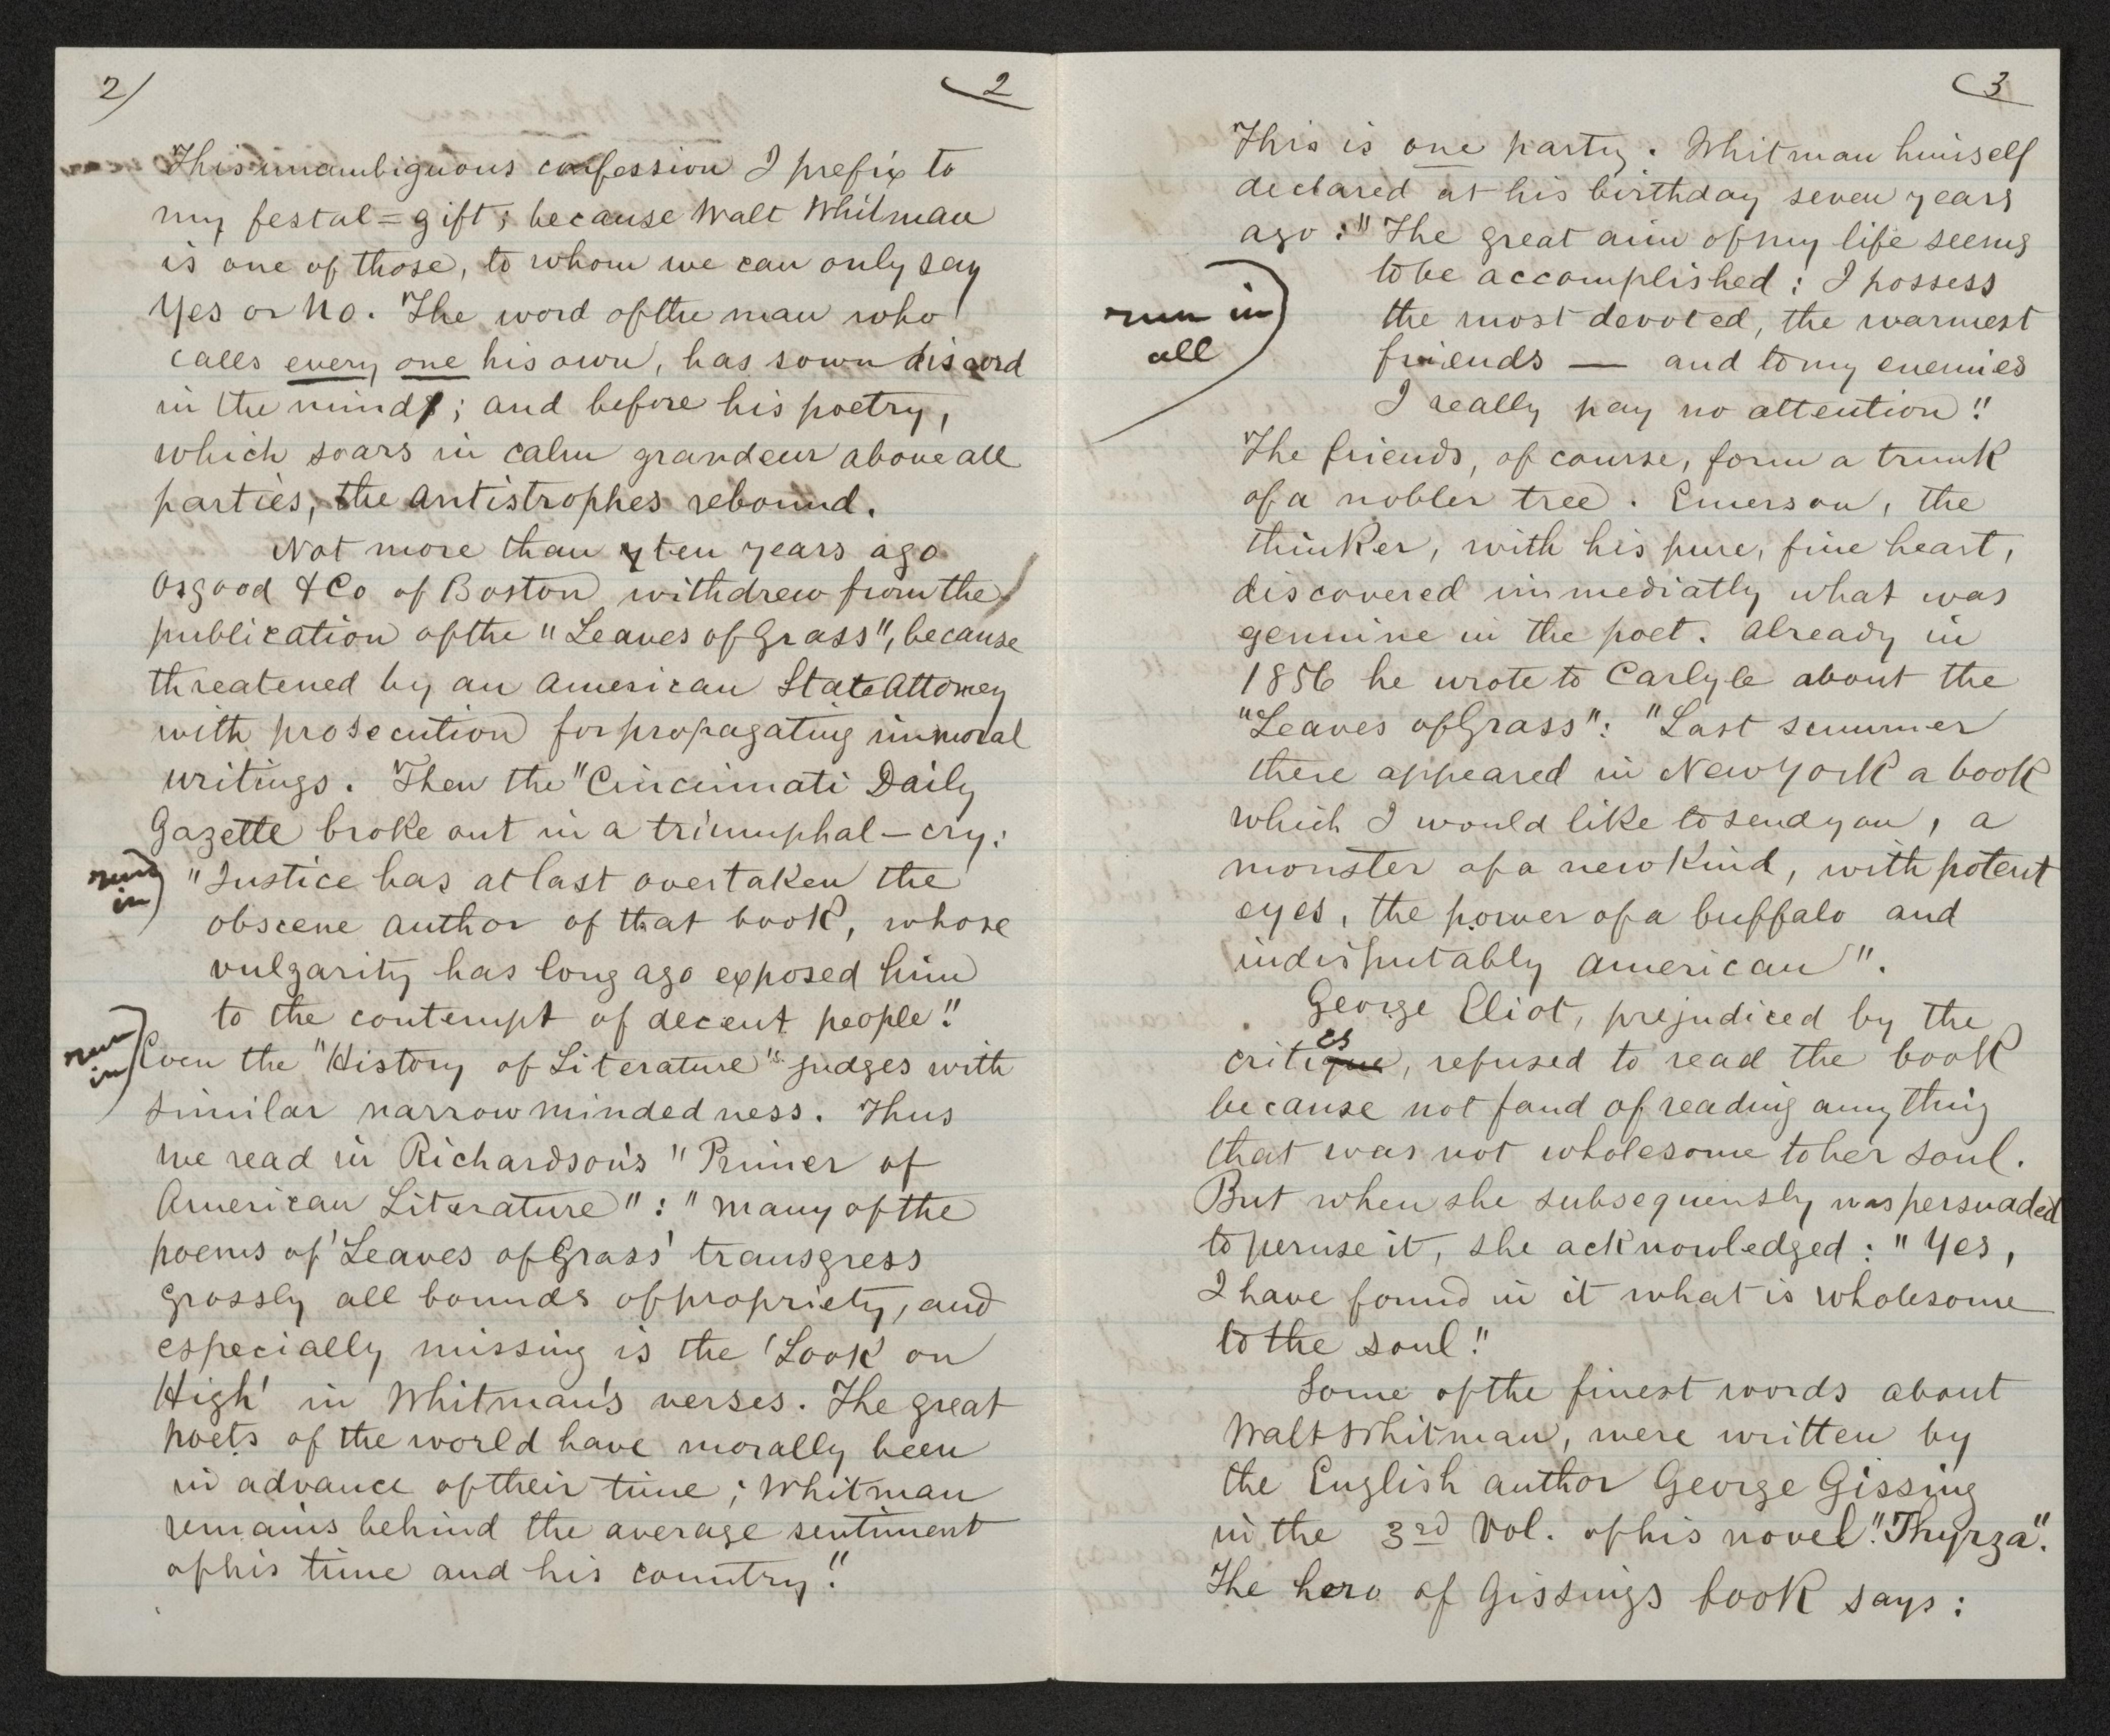 2/
2
This unambiguous confession I prefix to
my festal=gift; because Walt Whitman
is one of those, to whom we can only say
Yes or No. The word of the man who
calls every one his own, has sown discord
in the mind; and before his poetry,
which soars in calm grandeur above all
parties, the antistrophes rebound.
Not more than ten years ago
Osgood & Co of Boston withdrew from the
publication of the "Leaves of Grass", because
threatened by an American State Attorney
with prosecution for propagating immoral
writings. Then the "Cincinnati Daily
Gazette broke out in a triumphal-cry:
run in
"Justice has at last overtaken the
obscene author of that book, whose
vulgarity has long ago exposed him
to the contempt of decent people."
run in
Even the "History of Literature" judges with
similar narrowmindedness. Thus
we read in Richardson's "Primer of
American Literature": "Many of the
poems of 'Leaves of Grass' transgress
grossly all bounds of propriety, and
especially missing is the 'Look on
High' in Whitman's verses. The great
poets of the world have morally been
in advance of their time; Whitman
remains behind the average sentiment
of his time and his country."
3
This is one party. Whitman himself
declared at his birthday seven years
ago: "The great aim of my life seems
to be accomplished: I possess
run in
all
the most devoted, the warmest
friends — and to my enemies
I really pay no attention!"
The friends, of course, form a trunk
of a nobler tree. Emerson, the
thinker, with his pure, fine heart,
discovered immediatly what was
genuine in the poet. Already in
1856 he wrote to Carlyle about the
"Leaves of Grass": "Last summer
there appeared in New York a book
which I would like to send you, a
monster of a new kind, with potent
eyes, the power of a buffalo and
indisputably American".
George Eliot, prejudiced by the
critics, refused to read the book
because not fond of reading any thing
that was not wholesome to her soul.
But when she subsequently was persuaded
to peruse it, she acknowledged: "Yes,
I have found in it what is wholesome
to the soul!"
Some of the finest words about
Walt Whitman, were written by
the English author George Gissing
in the 3rd Vol. of his novel "Thyrza".
The hero of Gissings book says: